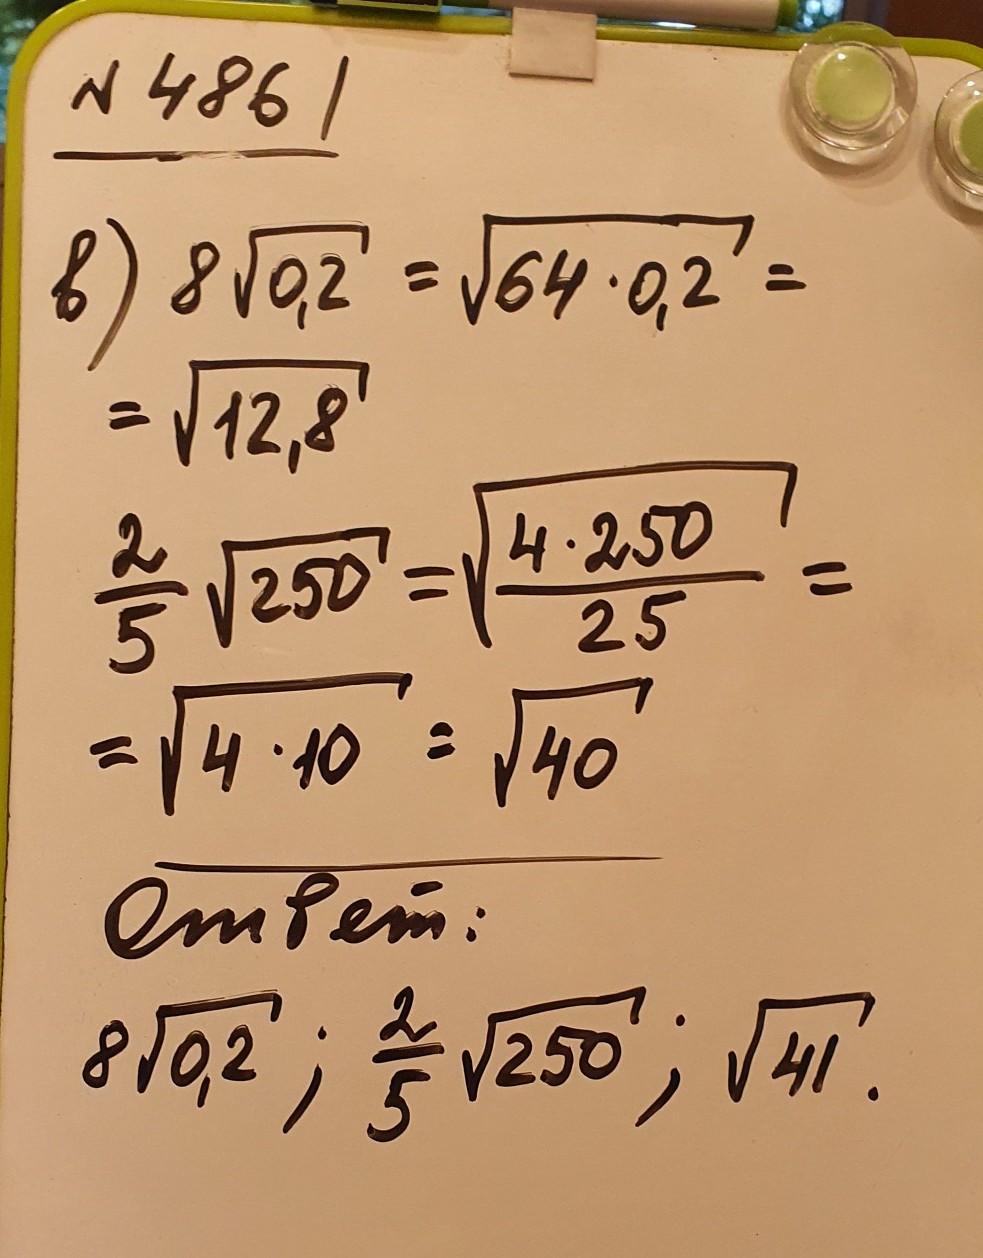 №486
в) 8√0,2 = √64·0,2 =
= √12,8
2/5 √250 = √(4·250/25) =
= √4·10 = √40
Ответ:
8√0,2 ; 2/5 √250 ; √41.